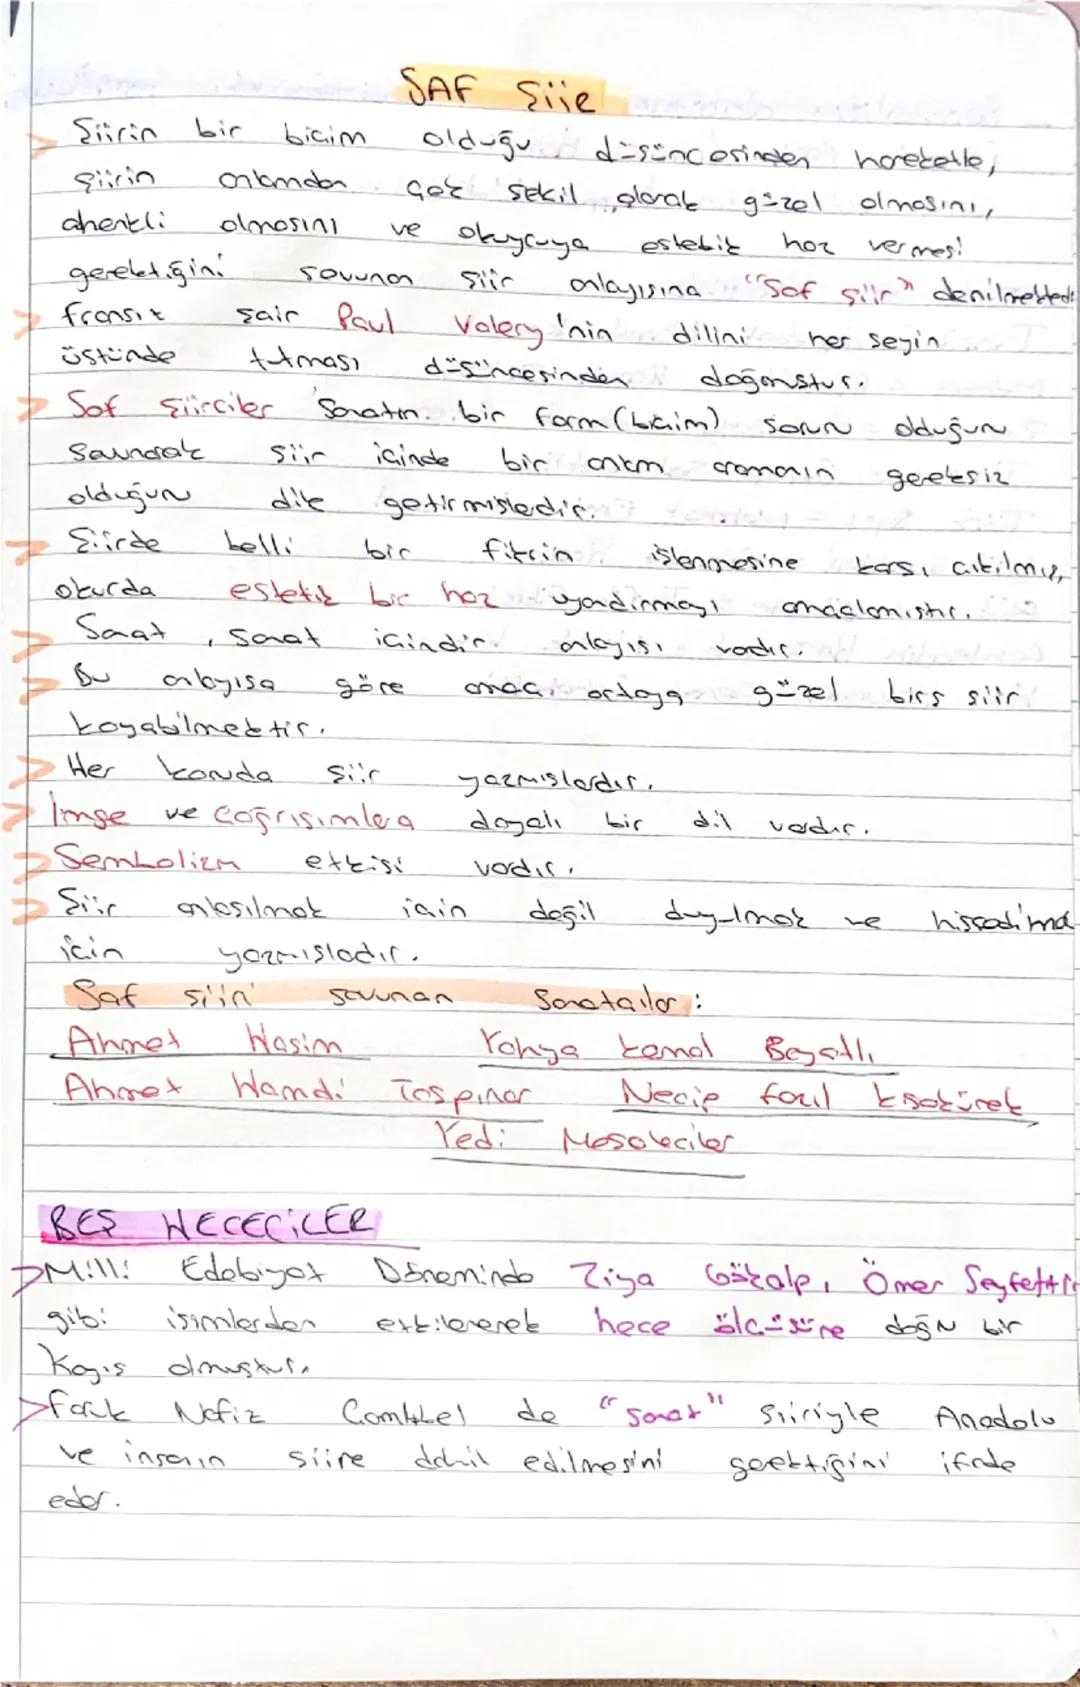 SAF Şiir
Şiirin bir biçim olduğu düşüncesinden hareketle,
şiirin anlamdan çok şekil olarak güzel olmasını,
ahenkli olmasını ve okuyucuya estetik haz vermesi
gerektiğini savunan şiir anlayışına "Saf şiir" denilmektedi
fransız şair Paul Valery'nin dilini her şeyin
üstünde tutması düşüncesinden doğmuştur.
Saf şiirciler Sanatın bir form (biçim) sorun olduğun
Savunarak şiir içinde bir anlam aramanın gereksiz
olduğun dile getirmişlerdir.
Şiirde belli bir fikrin işlenmesine karşı çıkılmış,
okurda estetik bir haz uyandırmayı amaçlamıştır.
Sanat, sanat içindir anlayışı vardır.
Bu anlayışa göre amaç ortaya güzel birş şiir
koyabilmektir.
Her konuda şiir yazmışlardır.
İmge ve çağrışımlara dayalı bir dil vardır.
Sembolizm etkisi vardır.
Şiir anlaşılmak için değil duyulmak ve hissedilme
için yazmışladır.
Saf şiiri savunan Sanatçılar:
Ahmet Haşim Yahya kemal Beyatlı
Ahmet Hamdi Taşpınar Necip fazıl kısakürek
Yedi Meşaleciler
BEŞ HECECİLER
Milli Edebiyat Döneminde Ziya Gökalp, Ömer Seyfettin
gibi isimlerden etkilenerek hece ölçüsüne doğru bir
Kayış olmuştur.
faruk Nafiz Çamlıbel de "Sanat" şiiriyle Anadolu
ve insanın şiire dahil edilmesini gerektiğini ifade
eder.